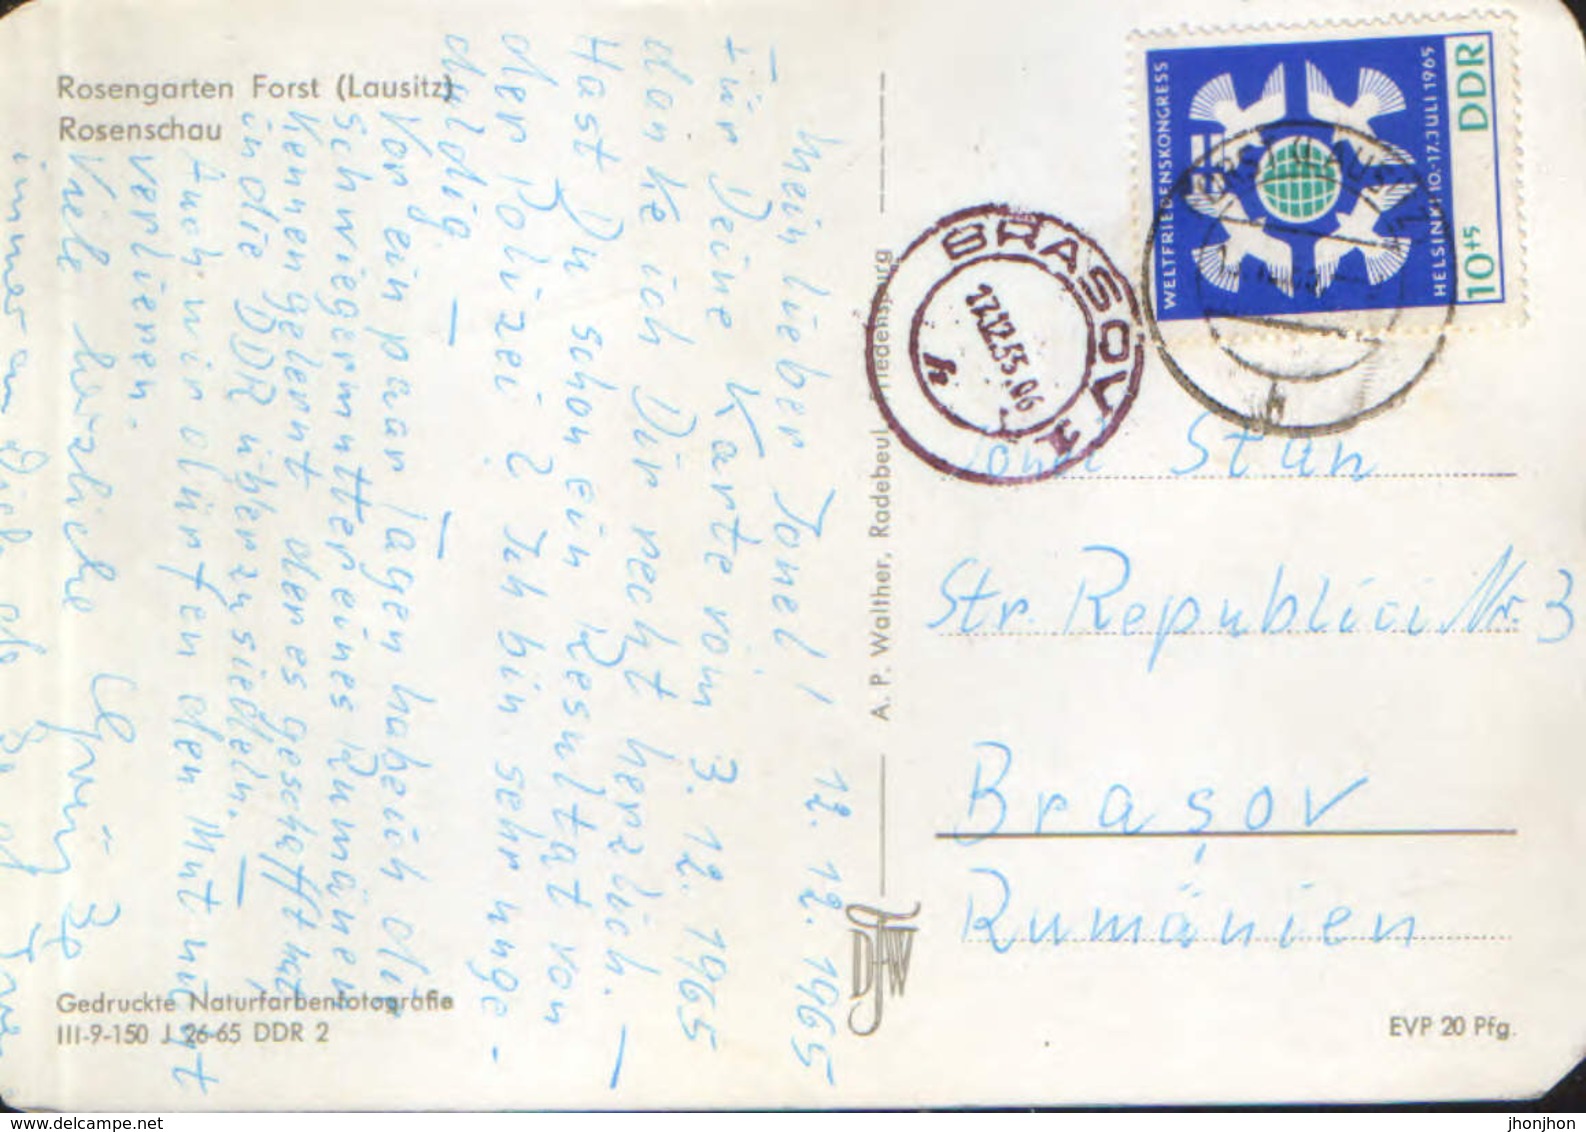 Rosengarten Forst (Lausitz)
Rosenschau
Mein lieber Jonel! 12. 12. 1965
Für Deine Karte vom 3. 12. 1965
danke ich Dir recht herzlich. –
Hast Du schon ein Resultat von
der Polizei? Ich bin sehr unge-
duldig. –
Vor ein paar Tagen habe ich die
Schwiegermutter eines Rumänen
kennengelernt, der es geschafft hat,
in die DDR überzusiedeln. –
Auch wir dürfen den Mut nicht
verlieren.
Viele herzliche
immer an Dich
Gedruckte Naturfarbenfotografie
III-9-150 J 26-65 DDR 2
A. P. Walther, Radebeul, Friedensburg
DFW
WELTFRIEDENSKONGRESS
HELSINKI 10.-17. JULI 1965
DDR
10+5
FORST (LAUSITZ)
h
BRASOV 1
17.12.55.06
Stan
Str. Republicii Nr. 3
Brașov
Rumänien
EVP 20 Pfg.
delcampe.net
jhonjhon